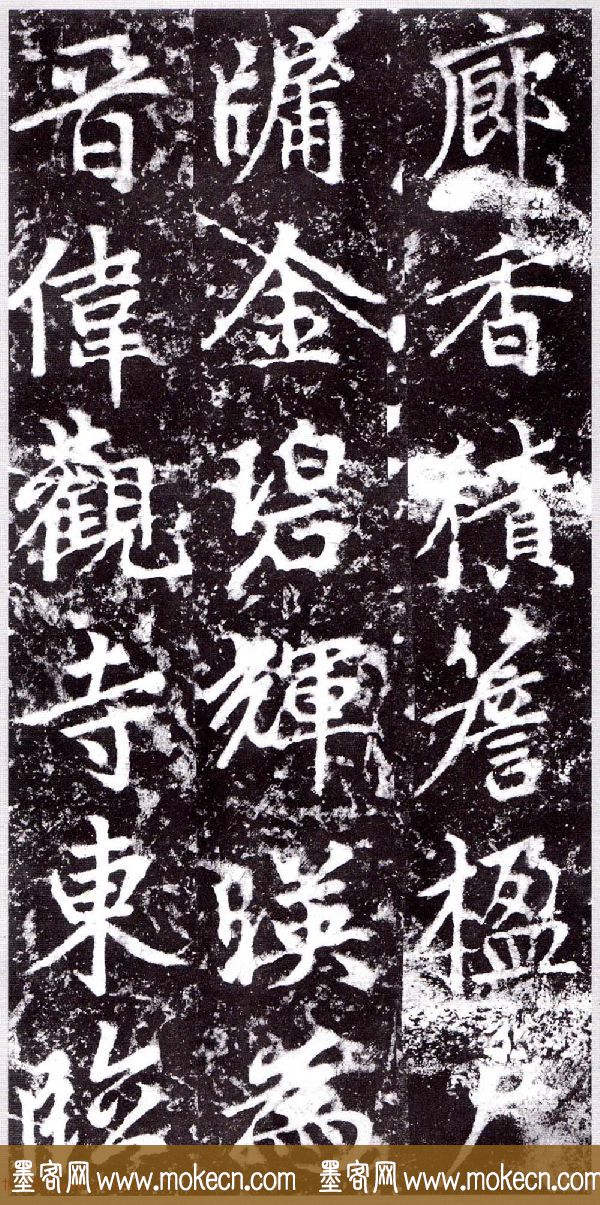 廊香積簷楹戶
牖金碧輝暎為
晉偉觀寺東臨
墨客网 www.mokecn.com 墨客网 www.mokecn.com